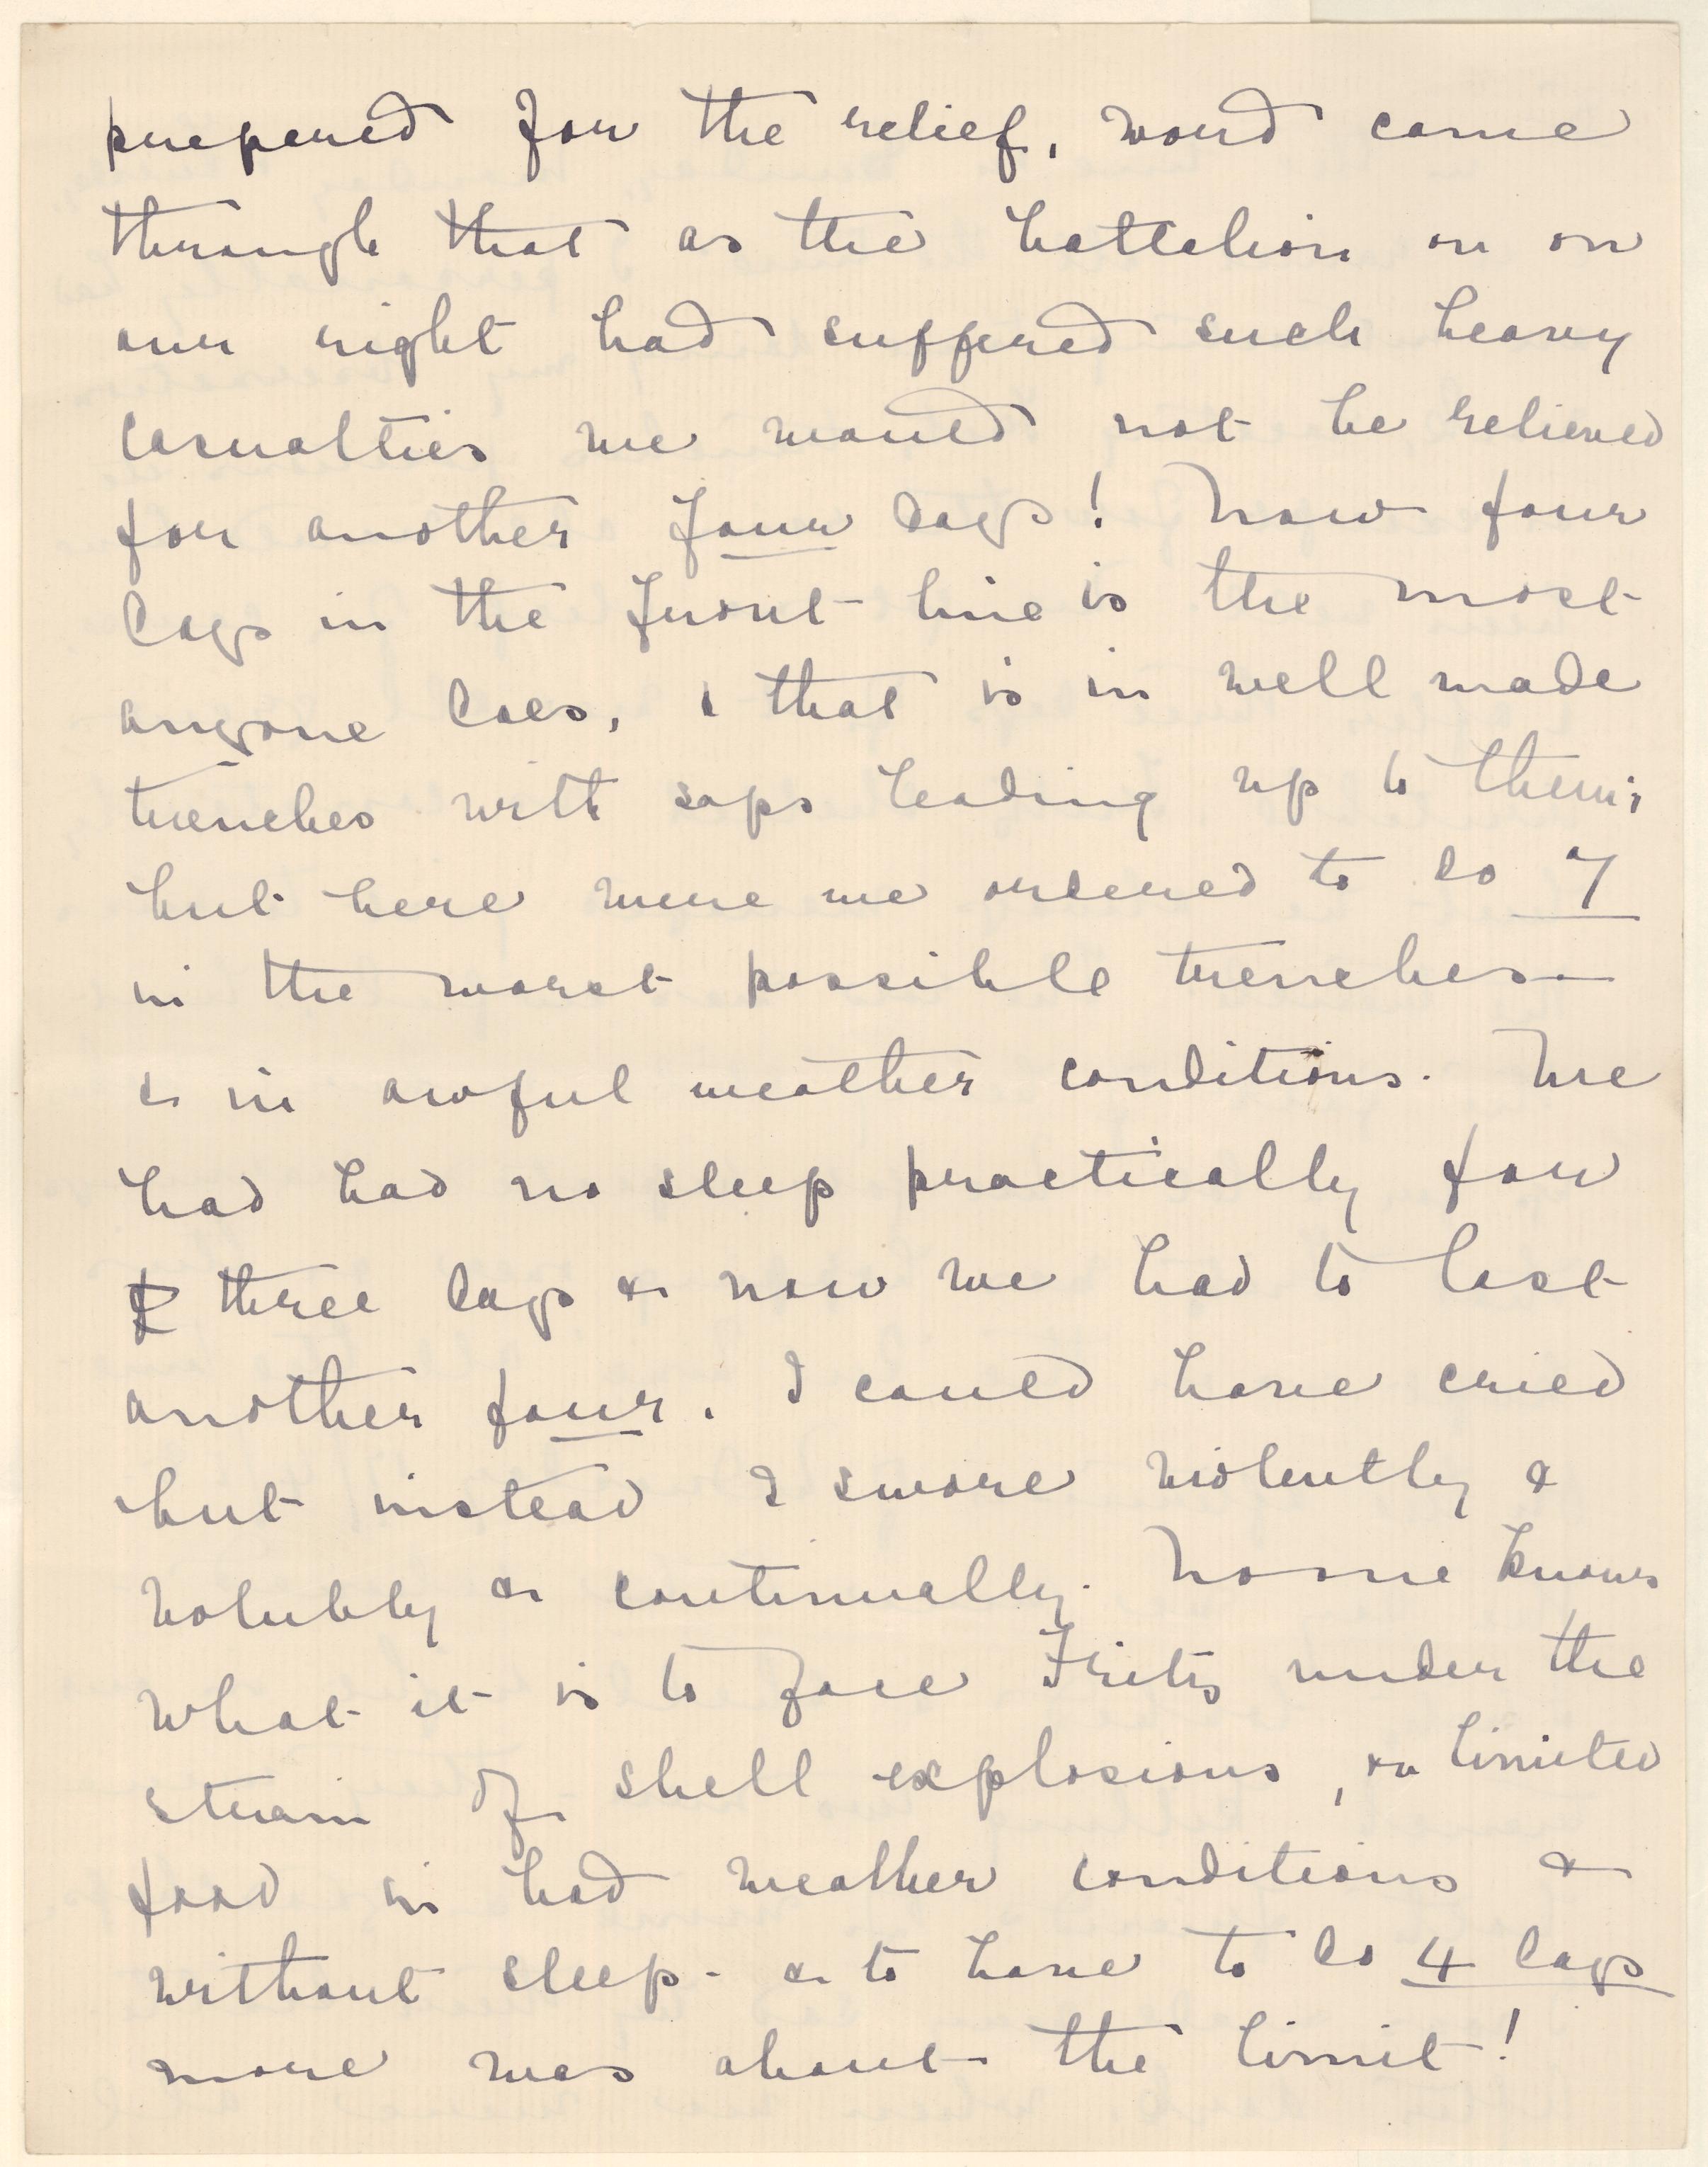 prepared for the relief, word came
through that as the battalion on on
our right had suffered such heavy
casualties we would not be relieved
for another four days! Now four
days in the front line is the most
anyone does, & that is in well made
trenches with saps leading up to them;
but here were we ordered to do 7
in the worst possible trenches —
& in awful weather conditions. We
had had no sleep practically for
three days & now we had to last
another four. I could have cried
but instead I swore violently &
volubly & continually. No one knows
what it is to face Fritz under the
strain of shell explosions, on limited
food in bad weather conditions &
without sleep - & to have to do 4 days
more was about the limit!